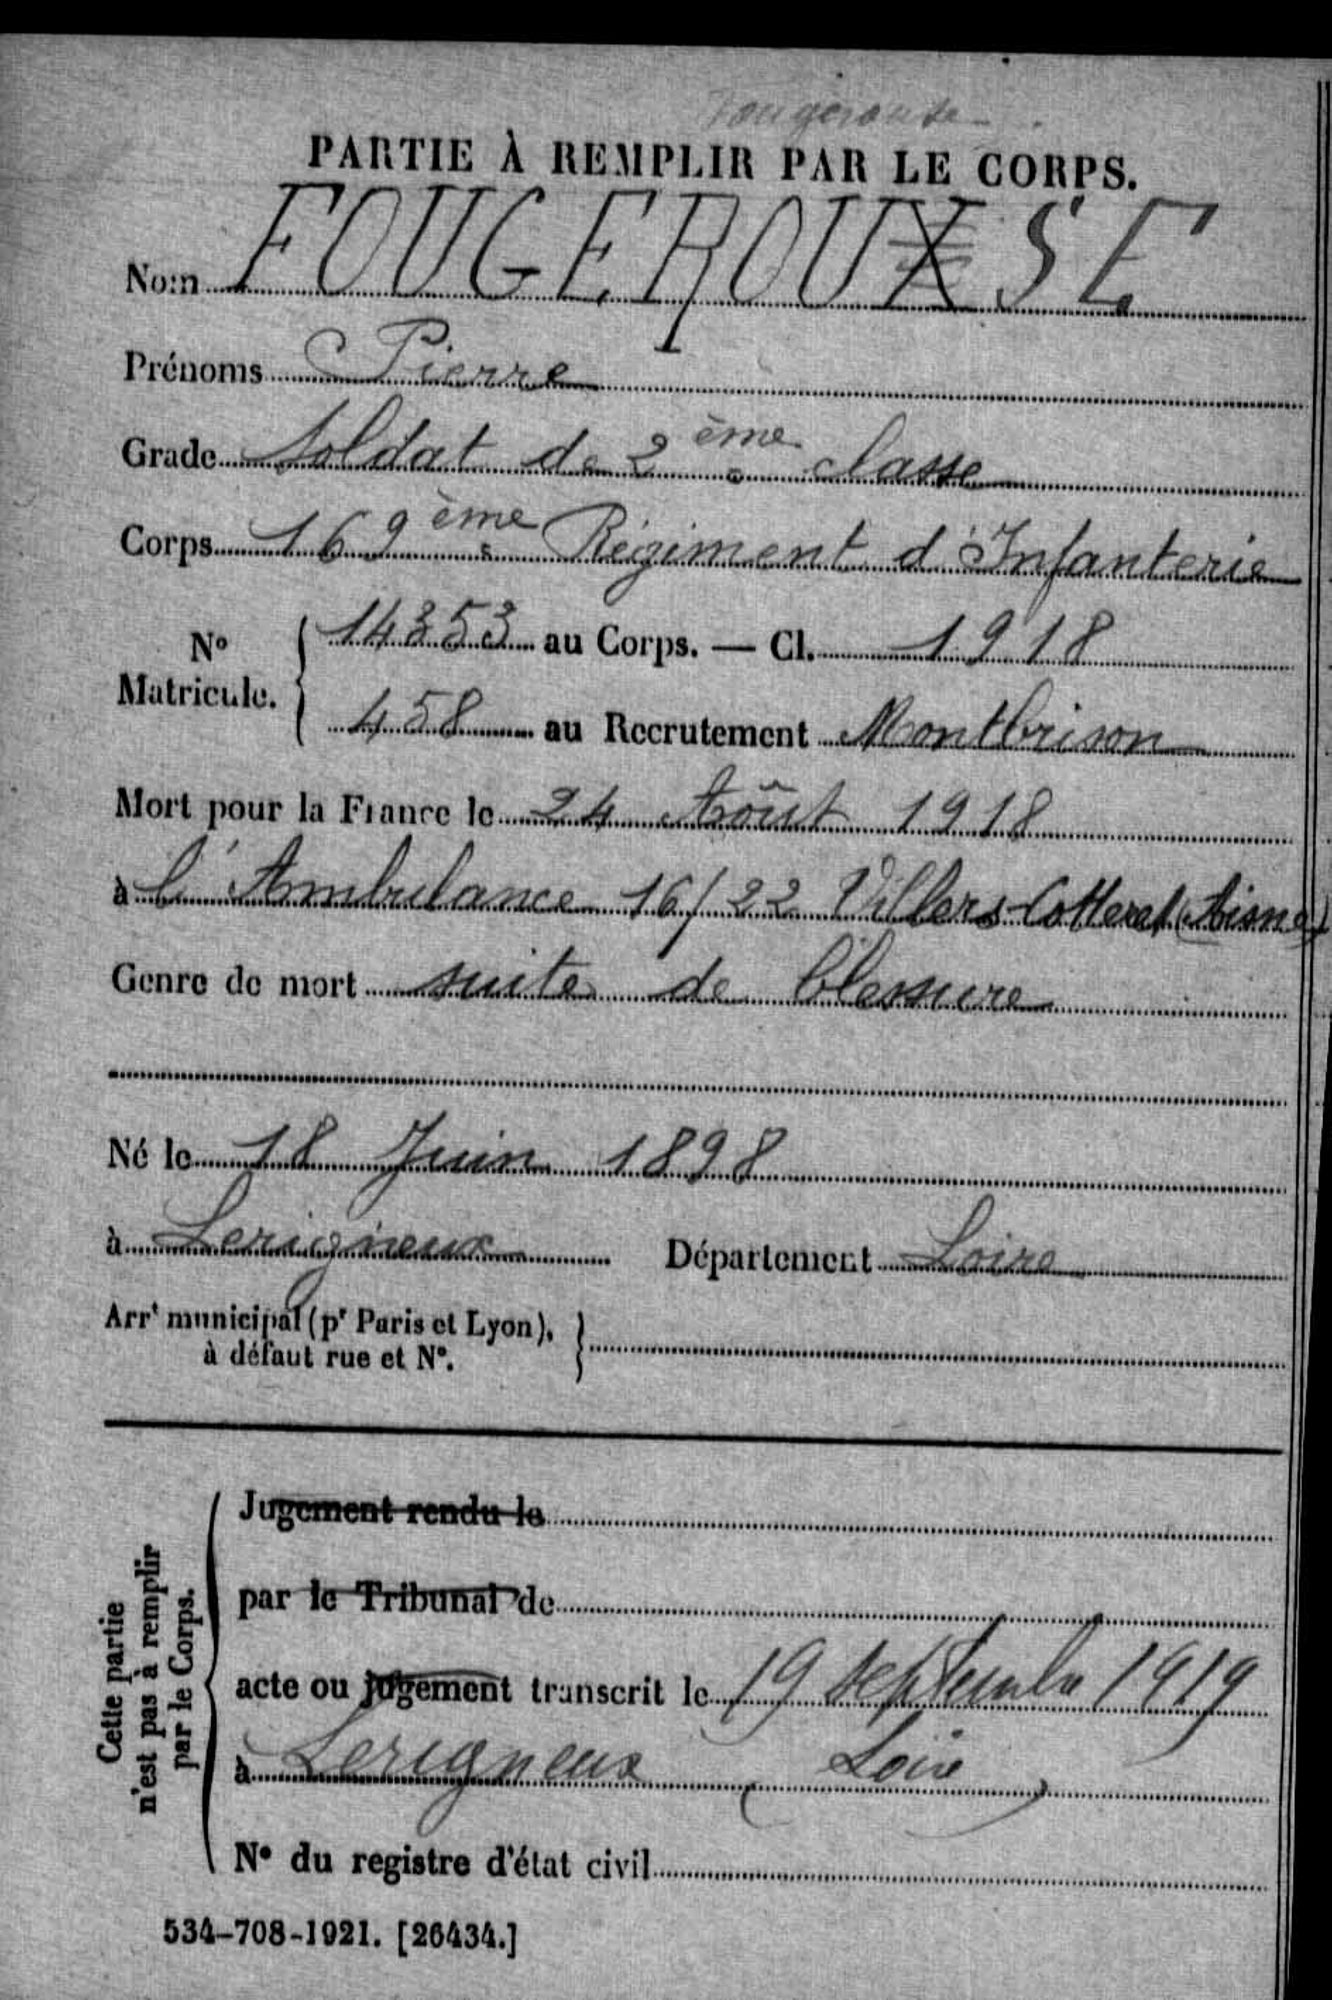 Fougerouse
PARTIE À REMPLIR PAR LE CORPS.
Nom FOUGEROUSE
Prénoms Pierre
Grade Soldat de 2ème classe
Corps 169ème Régiment d'Infanterie
N° Matricule. { 14353 au Corps. — Cl. 1918
458 au Recrutement Montbrison
Mort pour la France le 24 Août 1918
à l'Ambulance 16/22 Villers-Cotteret (Aisne)
Genre de mort suite de blessure
Né le 18 Juin 1898
à Lerigneux Département Loire
Arrt municipal (pr Paris et Lyon), à défaut rue et N°. }
Cette partie n'est pas à remplir par le Corps.
Jugement rendu le
par le Tribunal de
acte ou jugement transcrit le 19 septembre 1919
à Lerigneux (Loire)
N° du registre d'état civil
534-708-1921. [26434.]